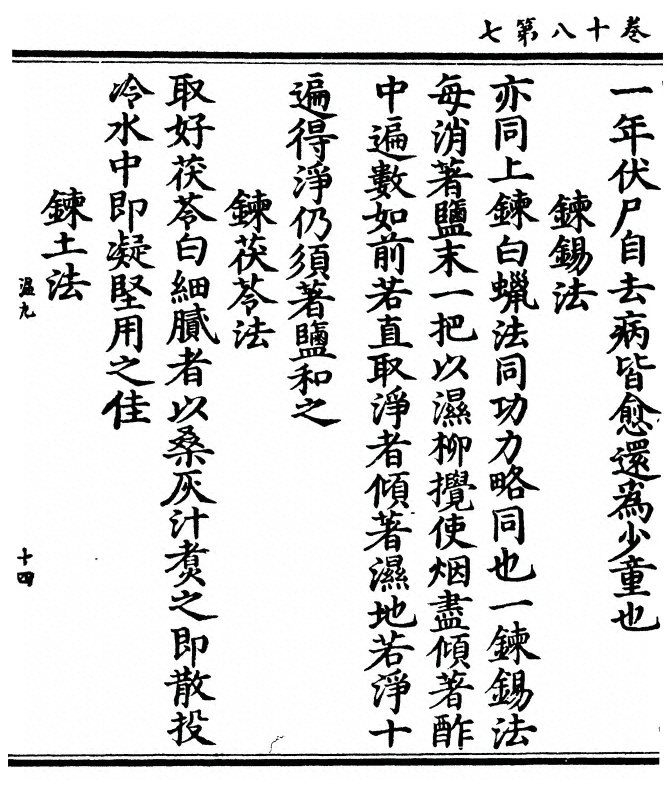 七第八十卷
一年伏尸自去病皆愈還為少童也
鍊錫法
亦同上鍊白蠟法同功力略同也一鍊錫法
每消著鹽末一把以濕柳攪使烟盡傾著酢
中遍數如前若直取淨者傾著濕地若淨十
遍得淨仍須著鹽和之
鍊茯苓法
取好茯苓白細膩者以桑灰汁煮之即散投
冷水中即凝堅用之佳
鍊土法
温九
十四